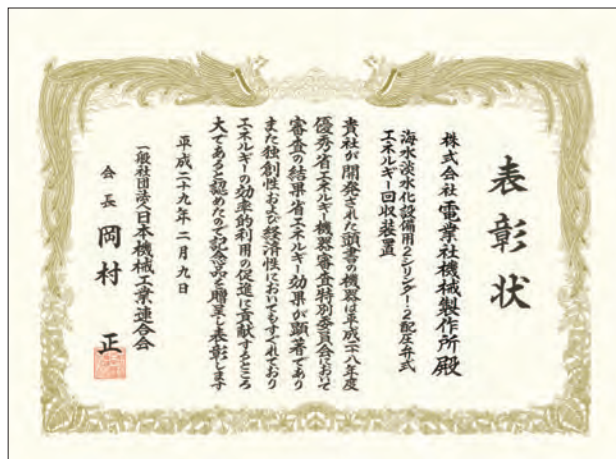 表彰状
株式会社 電業社機械製作所 殿
海水淡水化設備用2シリンダー・2配圧弁式
エネルギー回収装置
貴社が開発された頭書の機器は平成二十八年度
優秀省エネルギー機器審査特別委員会において
審査の結果省エネルギー効果が顕著であり
また独創性および経済性においてもすぐれており
エネルギーの効率的利用の促進に貢献するところ
大であると認めたので記念品を贈呈し表彰します
平成二十九年二月九日
一般社団法人日本機械工業連合会
会長 岡村 正